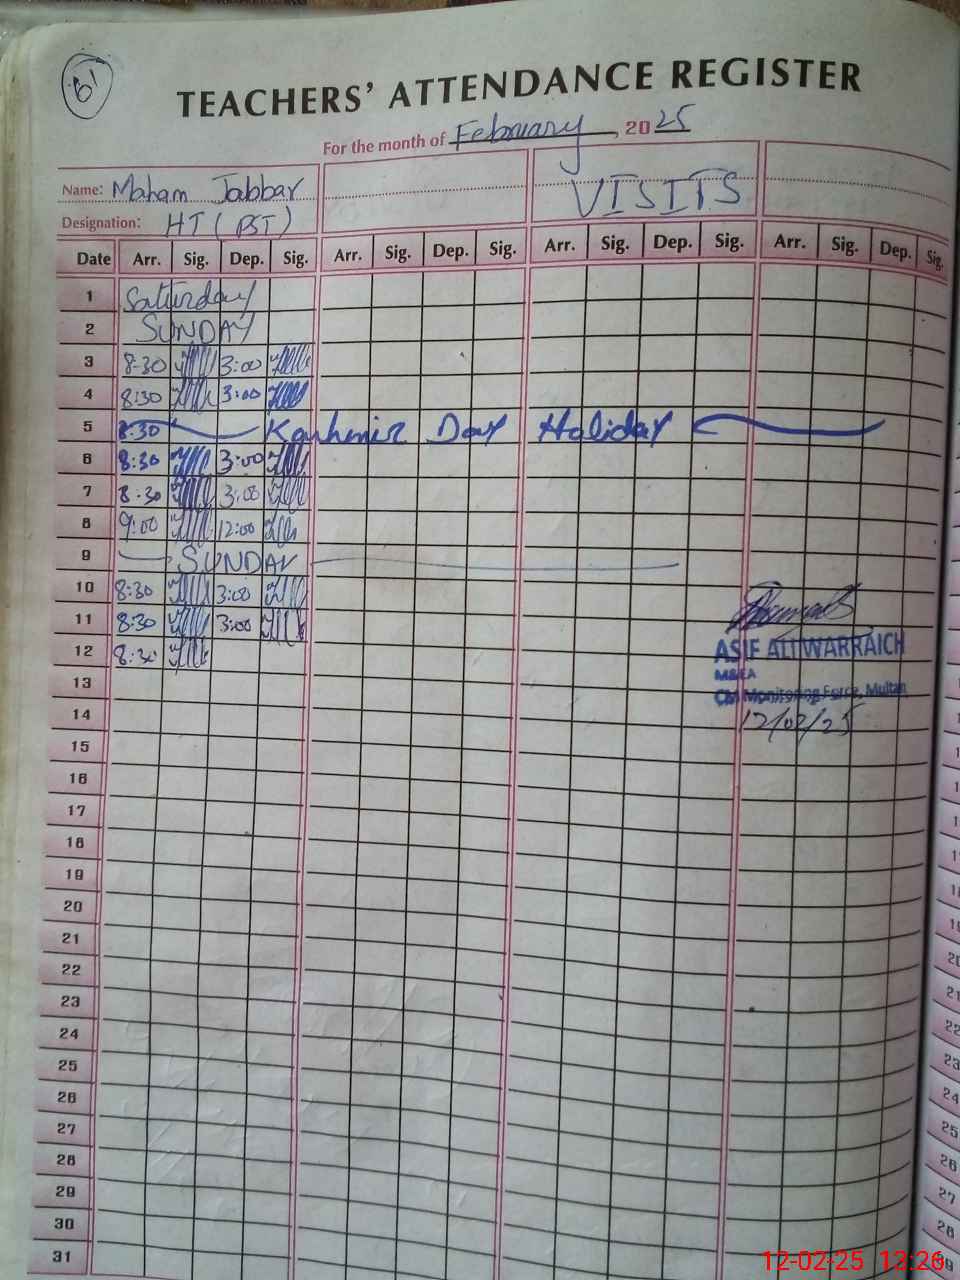 61
TEACHERS' ATTENDANCE REGISTER
For the month of February, 2025
Name: Maham Jabbar VISITS
Designation: HT (PST)
Date Arr. Sig. Dep. Sig. Arr. Sig. Dep. Sig. Arr. Sig. Dep. Sig. Arr. Sig. Dep. Sig.
1 Saturday
2 SUNDAY
3 8-30 3:00
4 8:30 3:00
5 8-30 Kashmir Day Holiday
6 8:30 3:00
7 8-30 3:00
8 9:00 12:00
9 SUNDAY
10 8:30 3:00
11 8:30 3:00
12 8:30
ASIF ALI WARRAICH
13
M&EA
CM Monitoring Force, Multan
14 12/02/25
15
16
17
18
19
20
21
22
23
24
25
26
27
28
29
30
31
12-02-25 13:26